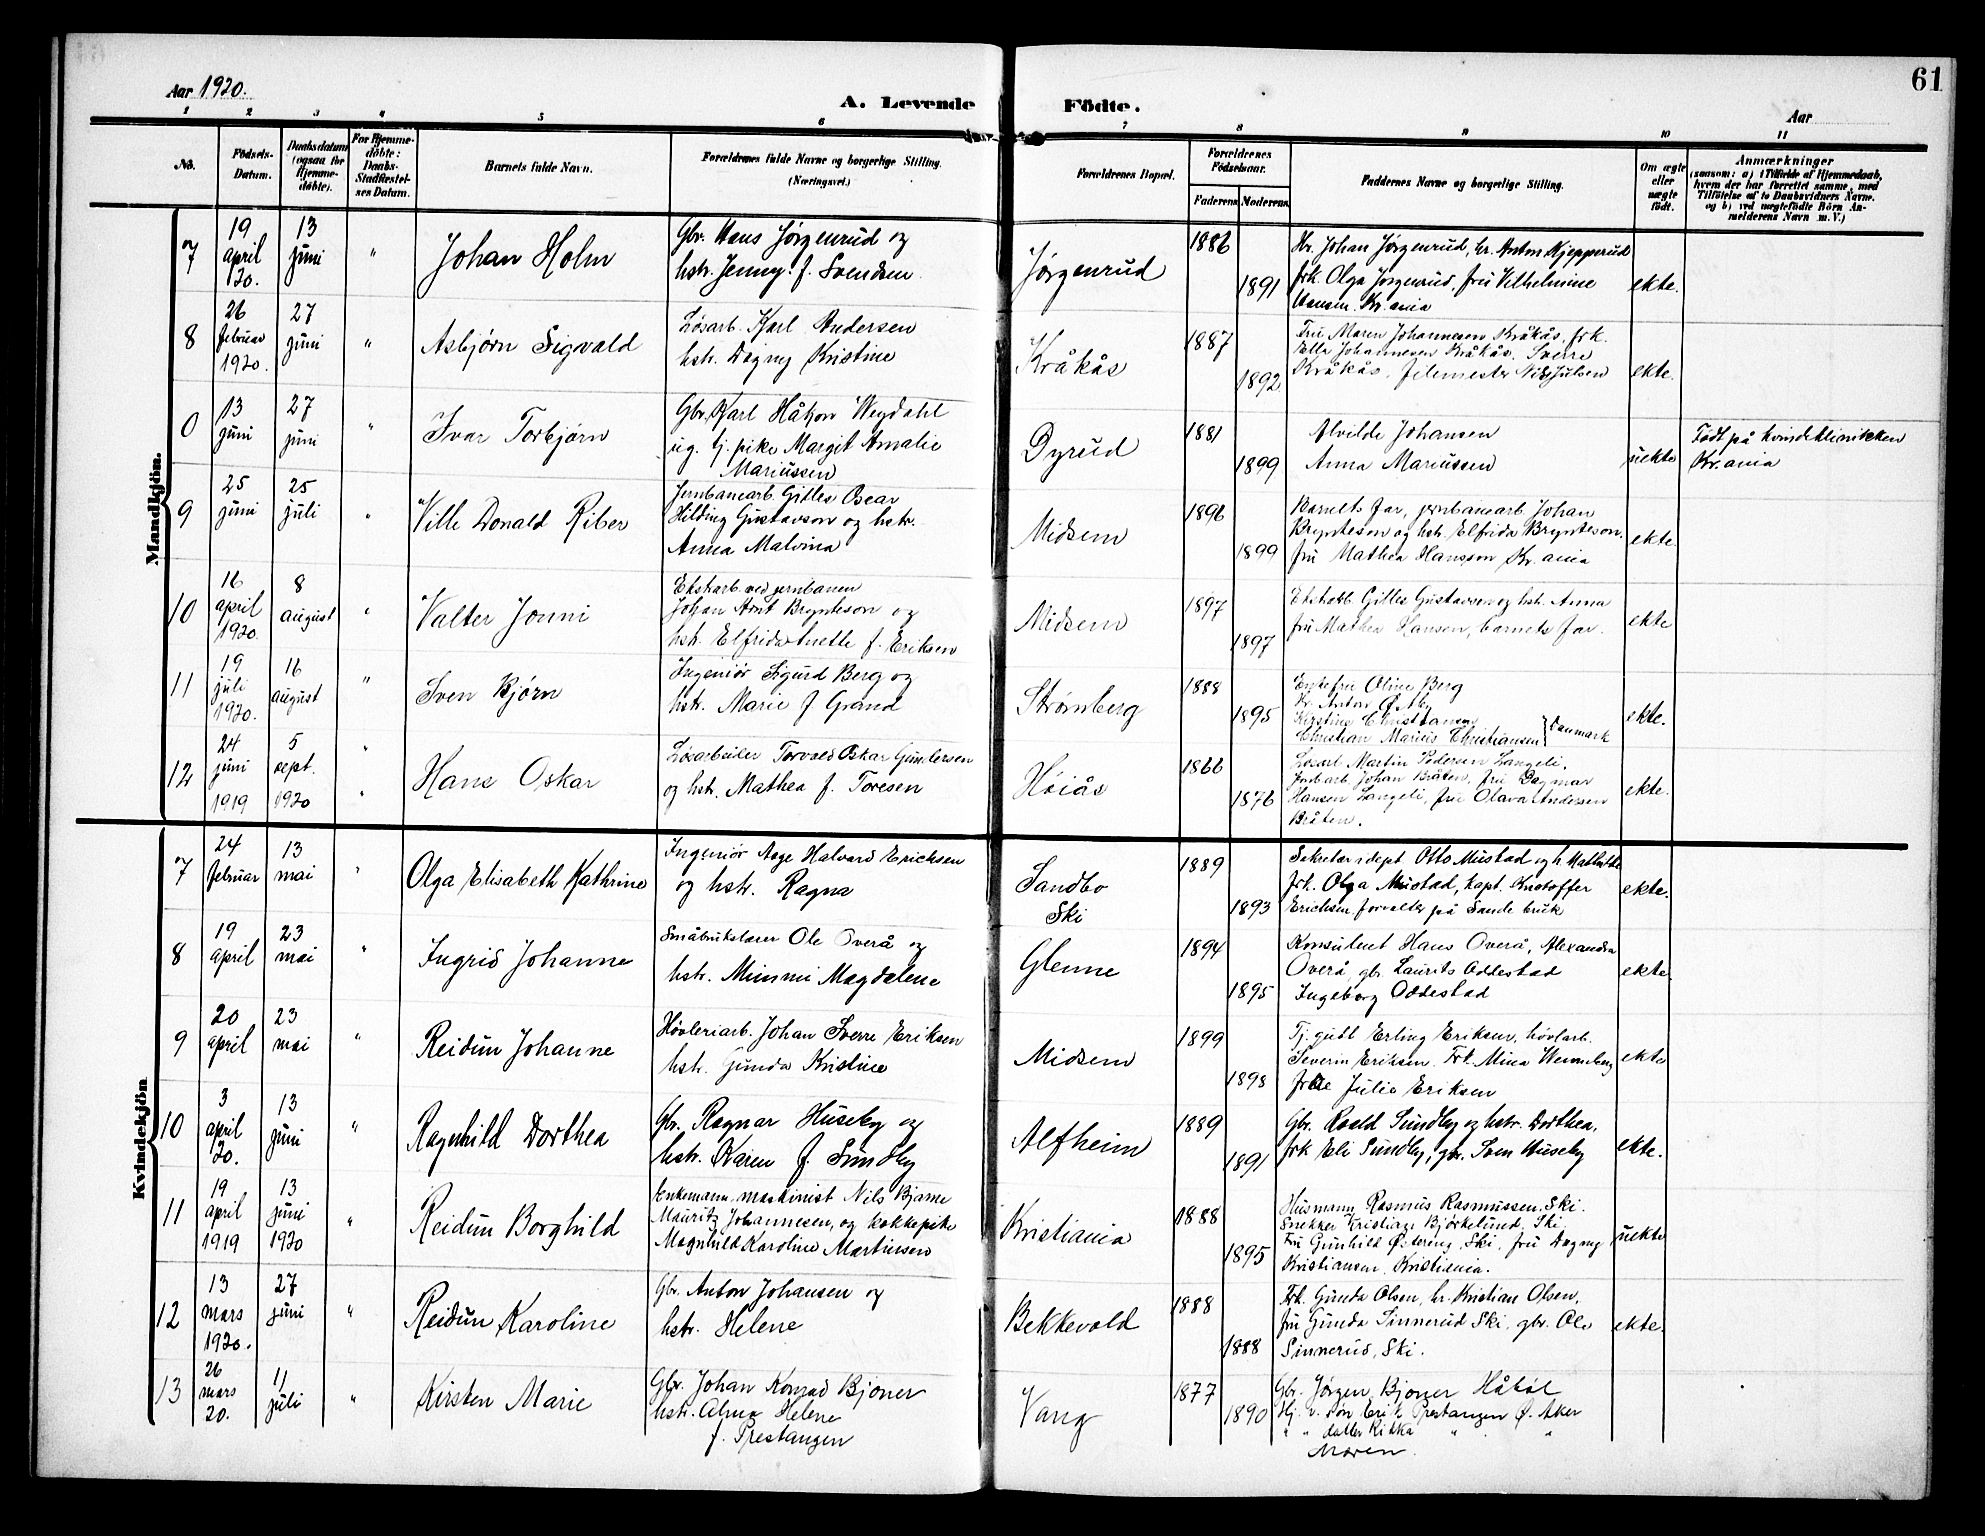 61
Aar 1920.
A. Levende Födte.
Aar
1 2 3 4 5 6 7 8 9 10 11
No.
Födsels-Datum.
Daabsdatum (ogsaa for Hjemme-döbte).
For Hjemme-döbte: Daabs-Stadfæstel-ses Datum.
Barnets fulde Navn.
Forældrenes fulde Navne og borgerlige Stilling. (Næringsvei.)
Forældrenes Bopæl.
Forældrenes Födselsaar.
Faderens Moderens
Faddernes Navne og borgerlige Stilling.
Om ægte eller uægte født.
Anmærkninger
(saasom: a) i Tilfælde af Hjemmedaab, hvem der har forrettet samme, med Tilföielse af to Daabsvidners Navne. og b) ved uægtefödte Börn An-melderens Navn m. V.)
Mandkjön.
7 19 april 20. 13 juni " Johan Holm
Gbr. Hans Jørgenrud og
hstr. Jenny f. Svendsen
Jørgenrud 1886 1891
Hr. Johan Jørgenrud, hr. Anton Kjepperud
frk. Olga Jørgenrud, fru Vilhelmine
Hansen. Kr.ania
ekte.
8 26 februar 1920. 27 juni " Asbjørn Sigvald
Løsarb. Karl Andersen
hstr. Dagny Kristine
Kråkås 1887 1892
Fru Maren Johannesen Kråkås, frk.
Ella Johannesen Kråkås. Sverre
Kråkås, filemester Nils Julsen
ekte.
0 13 juni 27 juni " Ivar Torbjørn
Gbr. Karl Håkon Wegdahl
ug. tj. pike Margit Amalie
Mariussen
Dyrud 1881 1899
Alvilde Johansen
Anna Mariussen
uekte
Født på kvindeklinikken
Kr.ania
9 25 juni 25 juli " Ville Donald Riber
Jernbanearb. Gilles Oscar
Hilding Gustavson og hstr.
Anna Malvina
Midsem 1896 1899
Barnets far, jernbanearb Johan
Brynteson og hstr. Elfrida Brynteson.
fru Mathea Hansson Kr.ania
ekte.
10 16 april 1920. 8 august " Valter Jonni
Ekstraarb. ved jernbanen
Johan Arnt Brynteson og
hstr. Elfrida Anette f. Eriksen
Midsem 1897 1897
Ekstraarb. Gilles Gustavsen og hstr. Anna
fru Mathea Hansen, barnets far.
ekte
11 19 juli 1920. 16 august " Sven Bjørn
Ingeniør Sigurd Berg og
hstr. Marie f Grand
Strømberg 1888 1895
Enkefru Oline Berg
Hr. Anton Østby
Kirstine Christiansen
Christian Marius Christiansen } Danmark
ekte.
12 24 juni 1919 5 sept. 1920 " Hans Oskar
Løsarbeider Torvald Oskar Gundersen
og hstr. Mathea f. Toresen
Høiås 1866 1876
Løsarb Martin Pedersen Langeli.
Jordarb Johan Bråten, fru Dagmar
Hansen Langeli, fru Olava Andersen
Bråten.
ekte.
Kvindekjön
7 24 februar 13 mai " Olga Elisabeth Kathrine
Ingeniør Aage Halvard Erichsen
og hstr. Ragna
Sandbo
Ski
1889 1893
Sekretær i dept. Otto Mustad og h. Mathilde
frk. Olga Mustad, kapt. Kristoffer
Erichsen forvalter på Sande bruk
ekte.
8 19 april 23 mai " Ingrid Johanne
Småbrukslærer Ole Overå og
hstr. Mimmi Magdalene
Glenne 1894 1895
Konsulent Hans Overå, Alexandra
Overå, gbr. Laurits Oddestad
Ingeborg Oddestad
ekte.
9 20 april 23 mai " Reidun Johanne
Høvleriarb. Johan Sverre Eriksen
hstr. Gunda Kristine
Midsem 1899 1898
Tj. gutt Erling Eriksen, høvlarb.
Severin Eriksen. Frk. Mina Wennberg
frøke Julie Eriksen
ekte
10 3 april 20. 13 juni " Ragnhild Dorthea
Gbr. Ragnar Huseby og
hstr. Karen f. Sundby
Alfheim 1889 1891
Gbr. Roald Sundby og hstr. Dorthea,
frk Eli Sundby, gbr. Sven Huseby
ekte.
11 19 april 1919 13 juni 1920 " Reidun Borghild
Enkemann, maskinist Nils Bjarne
Mauritz Johannesen, og kokkepike
Magnhild Karoline Martinsen
Kristiania 1888 1895
Husmann Rasmus Rasmussen, Ski.
Snekker Kristiags Bjørkelund, Ski.
Fru Gunhild Østereng, Ski, fru Dagny
Kristiansen. Kristiania.
uekte
12 13 mars 1920. 27 juni " Reidun Karoline
Gbr. Anton Johansen og
hstr. Helene
Bekkevold 1888 1888
Frk. Gunda Olsen, hr. Kristian Olsen,
fru Gunda Sinnerud Ski, gbr. Ole
Sinnerud, Ski.
ekte.
13 26 mars 20. 11 juli " Kirsten Marie
Gbr. Johan Konrad Bjoner
hstr. Alma Helene
f. Prestangen
Vang 1877 1890
Gbr. Jørgen Bjoner Håkøl
Hj. v. søn Erik Prestangen Ø. Aker
" " datter Rikka " "
Moren.